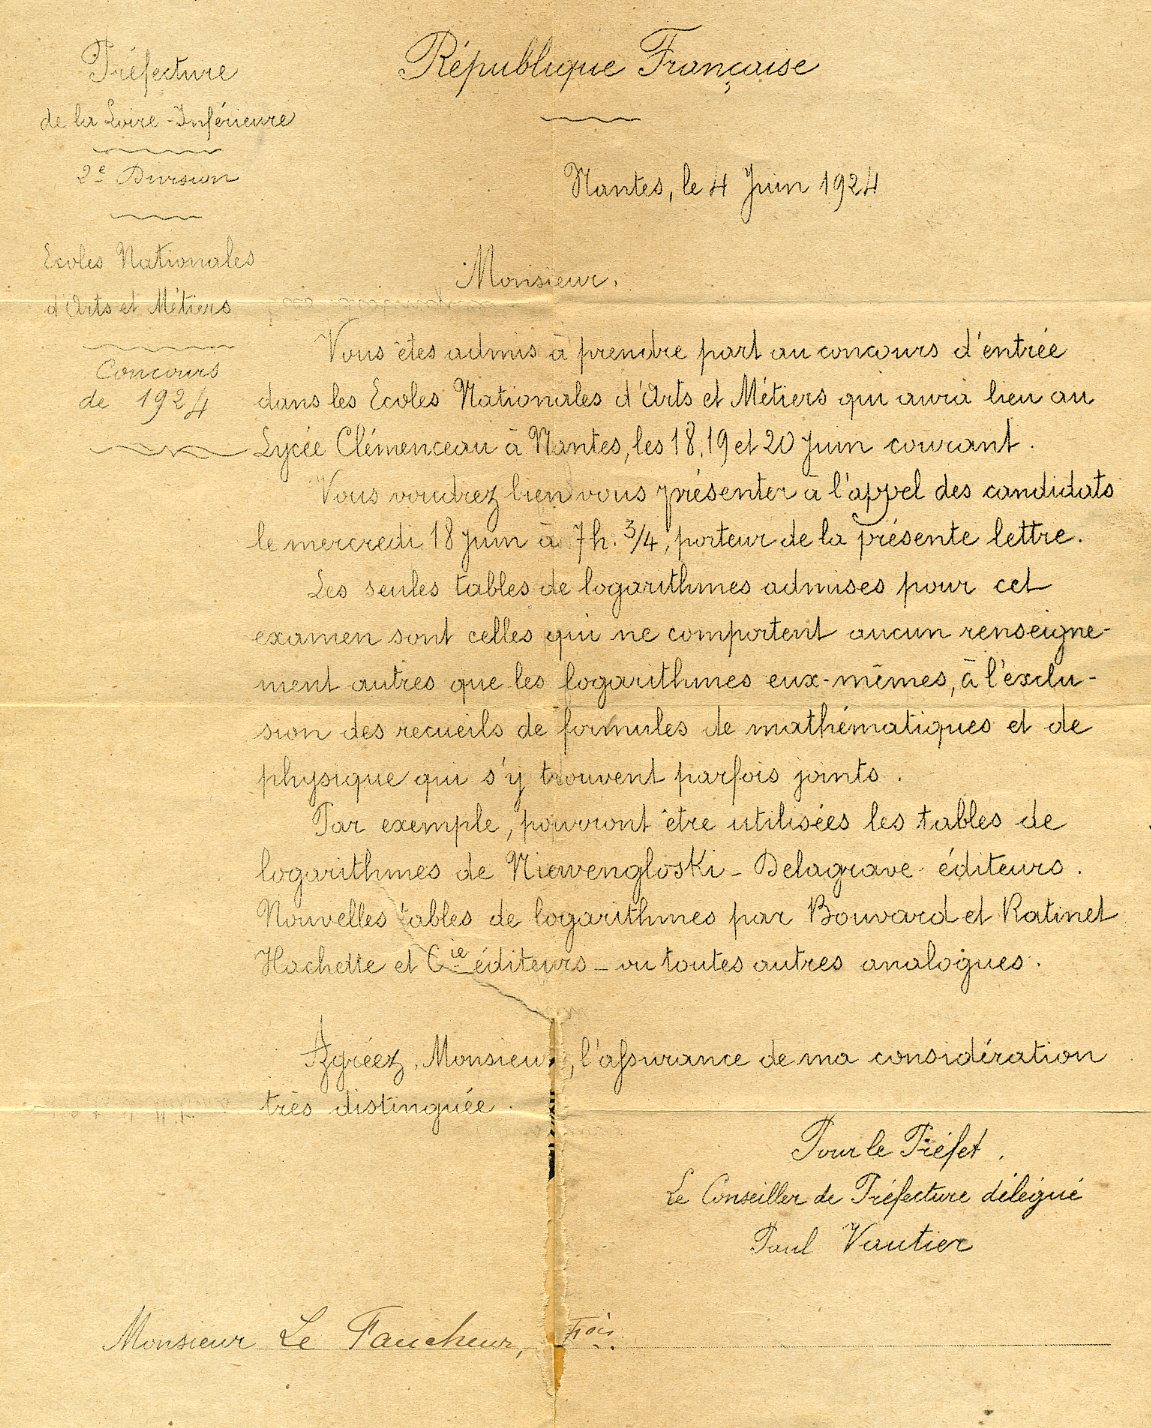 Préfecture
de la Loire-Inférieure
2e Division
Ecoles Nationales
d'Arts et Métiers
Concours
de 1924
République Française
Nantes, le 4 Juin 1924
Monsieur,
Vous êtes admis à prendre part au concours d'entrée
dans les Ecoles Nationales d'Arts et Métiers qui aura lieu au
Lycée Clémenceau à Nantes, les 18, 19 et 20 Juin courant.
Vous voudrez bien vous présenter à l'appel des candidats
le mercredi 18 Juin à 7h. 3/4, porteur de la présente lettre.
Les seules tables de logarithmes admises pour cet
examen sont celles qui ne comportent aucun renseigne-
ment autres que les logarithmes eux-mêmes, à l'exclu-
sion des recueils de formules de mathématiques et de
physique qui s'y trouvent parfois joints.
Par exemple, pourront être utilisées les tables de
logarithmes de Niewengloski - Delagrave éditeurs.
Nouvelles tables de logarithmes par Bouvard et Ratinet
Hachette et Cie éditeurs - ou toutes autres analogues.
Agréez, Monsieur, l'assurance de ma considération
très distinguée.
Pour le Préfet.
Le Conseiller de Préfecture délégué
Paul Vautier
Monsieur Le Faucheur, Fois.